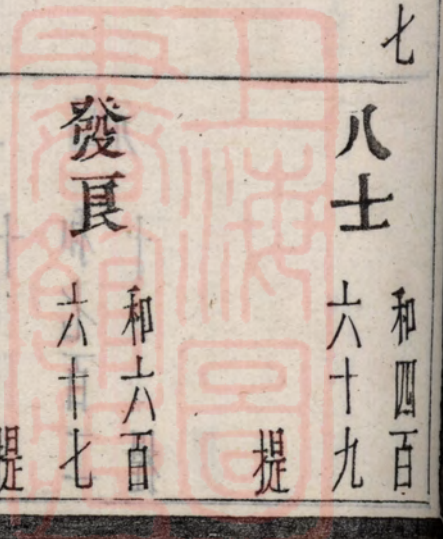 七
八士
和四百
六十九
提
發艮
和六百
六十七
提